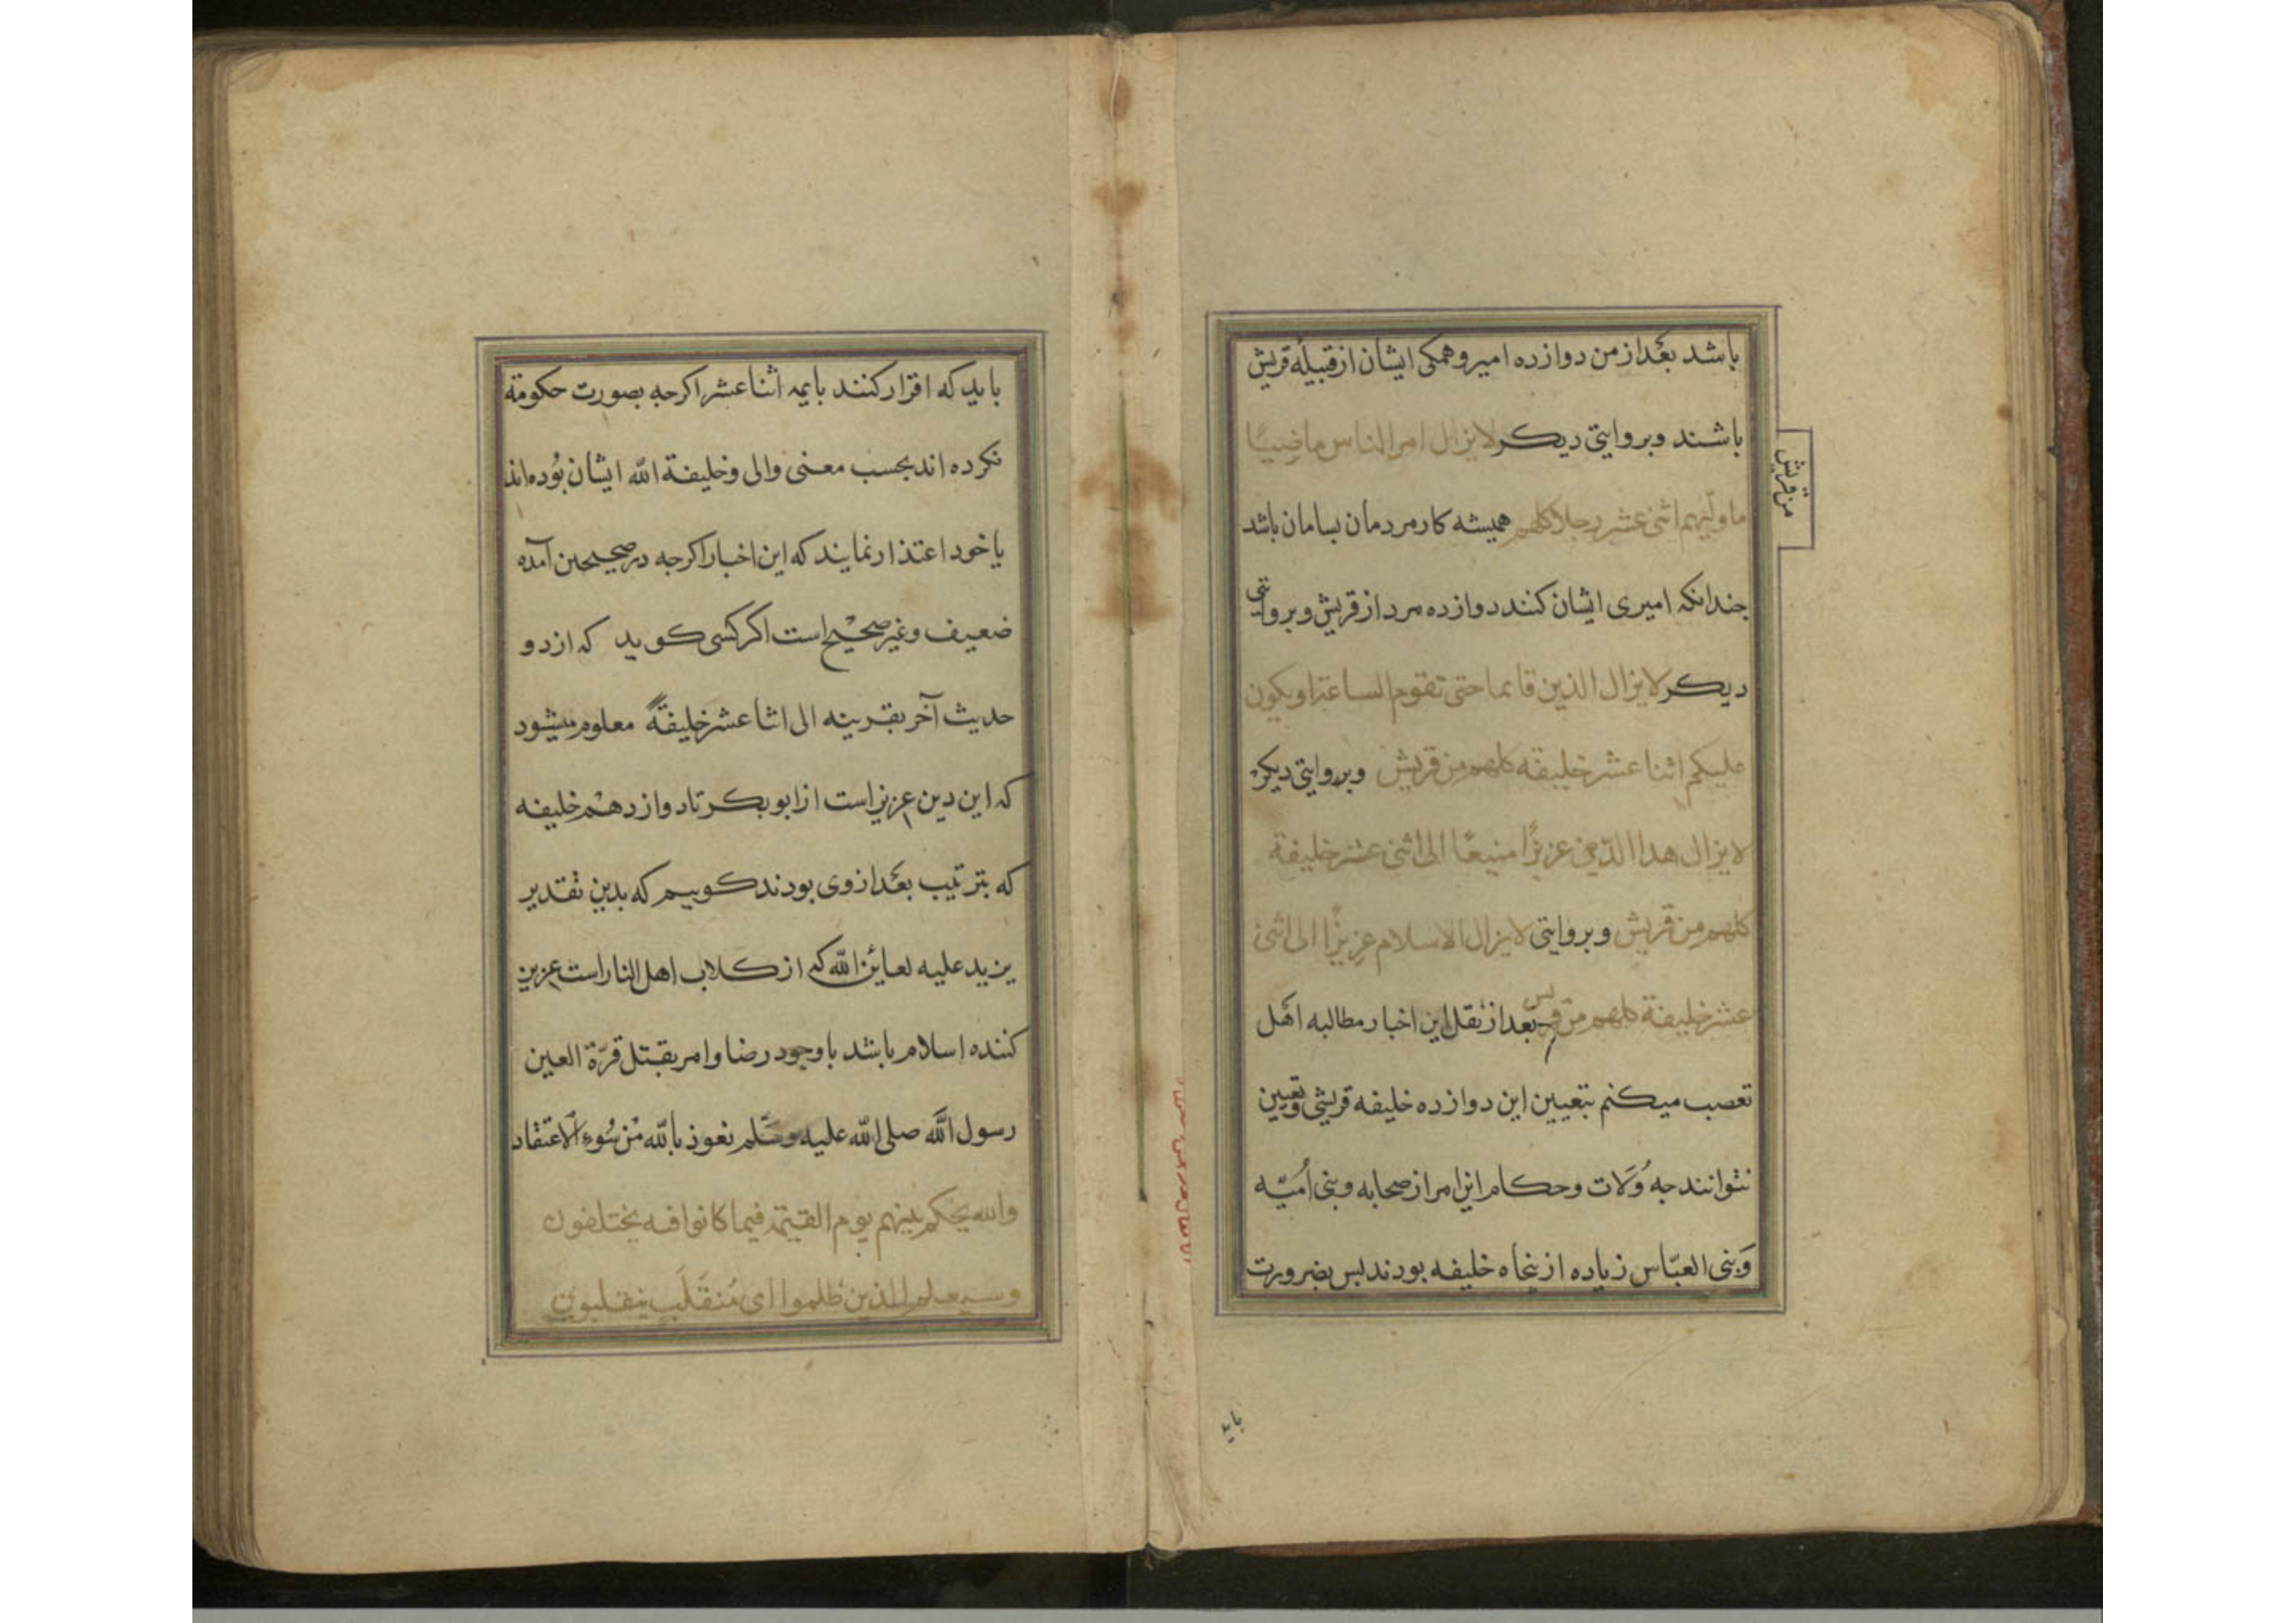 باشد بعد از من دوازده امیر و همکی ایشان از قبیله قریش
باشند و بروایتی دیکر لا یزال امر الناس ماضیًا
ما ولیهم اثنی عشر رجلا کلهم همیشه کار مردمان بسامان باشد
من قریش
جندانکه امیری ایشان کنند دوازده مرد از قریش و بروایتی
دیکر لا یزال الدین قائما حتی تقوم الساعة او یکون
علیکم اثنا عشر خلیفه کلهم من قریش و بروایتی دیکر
لا یزال هذا الدین عزیزًا منیعًا الی اثنی عشر خلیفة
کلهم من قریش و بروایتی لا یزال الاسلام عزیزًا الی اثنی
عشر خلیفة کلهم من قریش بعد از نقل این اخبار مطالبه اهل
تعصب میکنم بتعیین این دوازده خلیفه قریشی و تعیین
نتوانند جه وُلات و حکام این امر از صحابه و بنی اُمیّه
وَ بنی العبّاس زیاده از پنجاه خلیفه بودند بس بضرورت
باید
باید که اقرار کنند بایمه اثنا عشر اکرجه بصورت حکومة
نکرده اند بحسب معنی والی و خلیفة الله ایشان بُوده اند
یا خود اعتذار نمایند که این اخبار اکرجه در صحیحین آمده
ضعیف و غیر صحیح است اکر کسی کوید که از دو
حدیث آخر بقرینه الی اثنا عشر خلیفةً معلوم میشود
که این دین عزیز است از ابوبکر تا دوازدهم خلیفه
که بترتیب بعد از وی بودند کوییم که بدین تقدیر
یزید علیه لعائن الله که از کلاب اهل النار است عزیز
کننده اسلام باشد با وجود رضا و امر بقتل قرّة العین
رسول الله صلی الله علیه و سّلم نعوذ بالله من سُوء الاعتقاد
والله یحکم بینهم یوم القیمة فیما کانوا فیه یختلفون
وسیعلم الذین ظلموا ای مُنقَلَبٍ ینقلبون